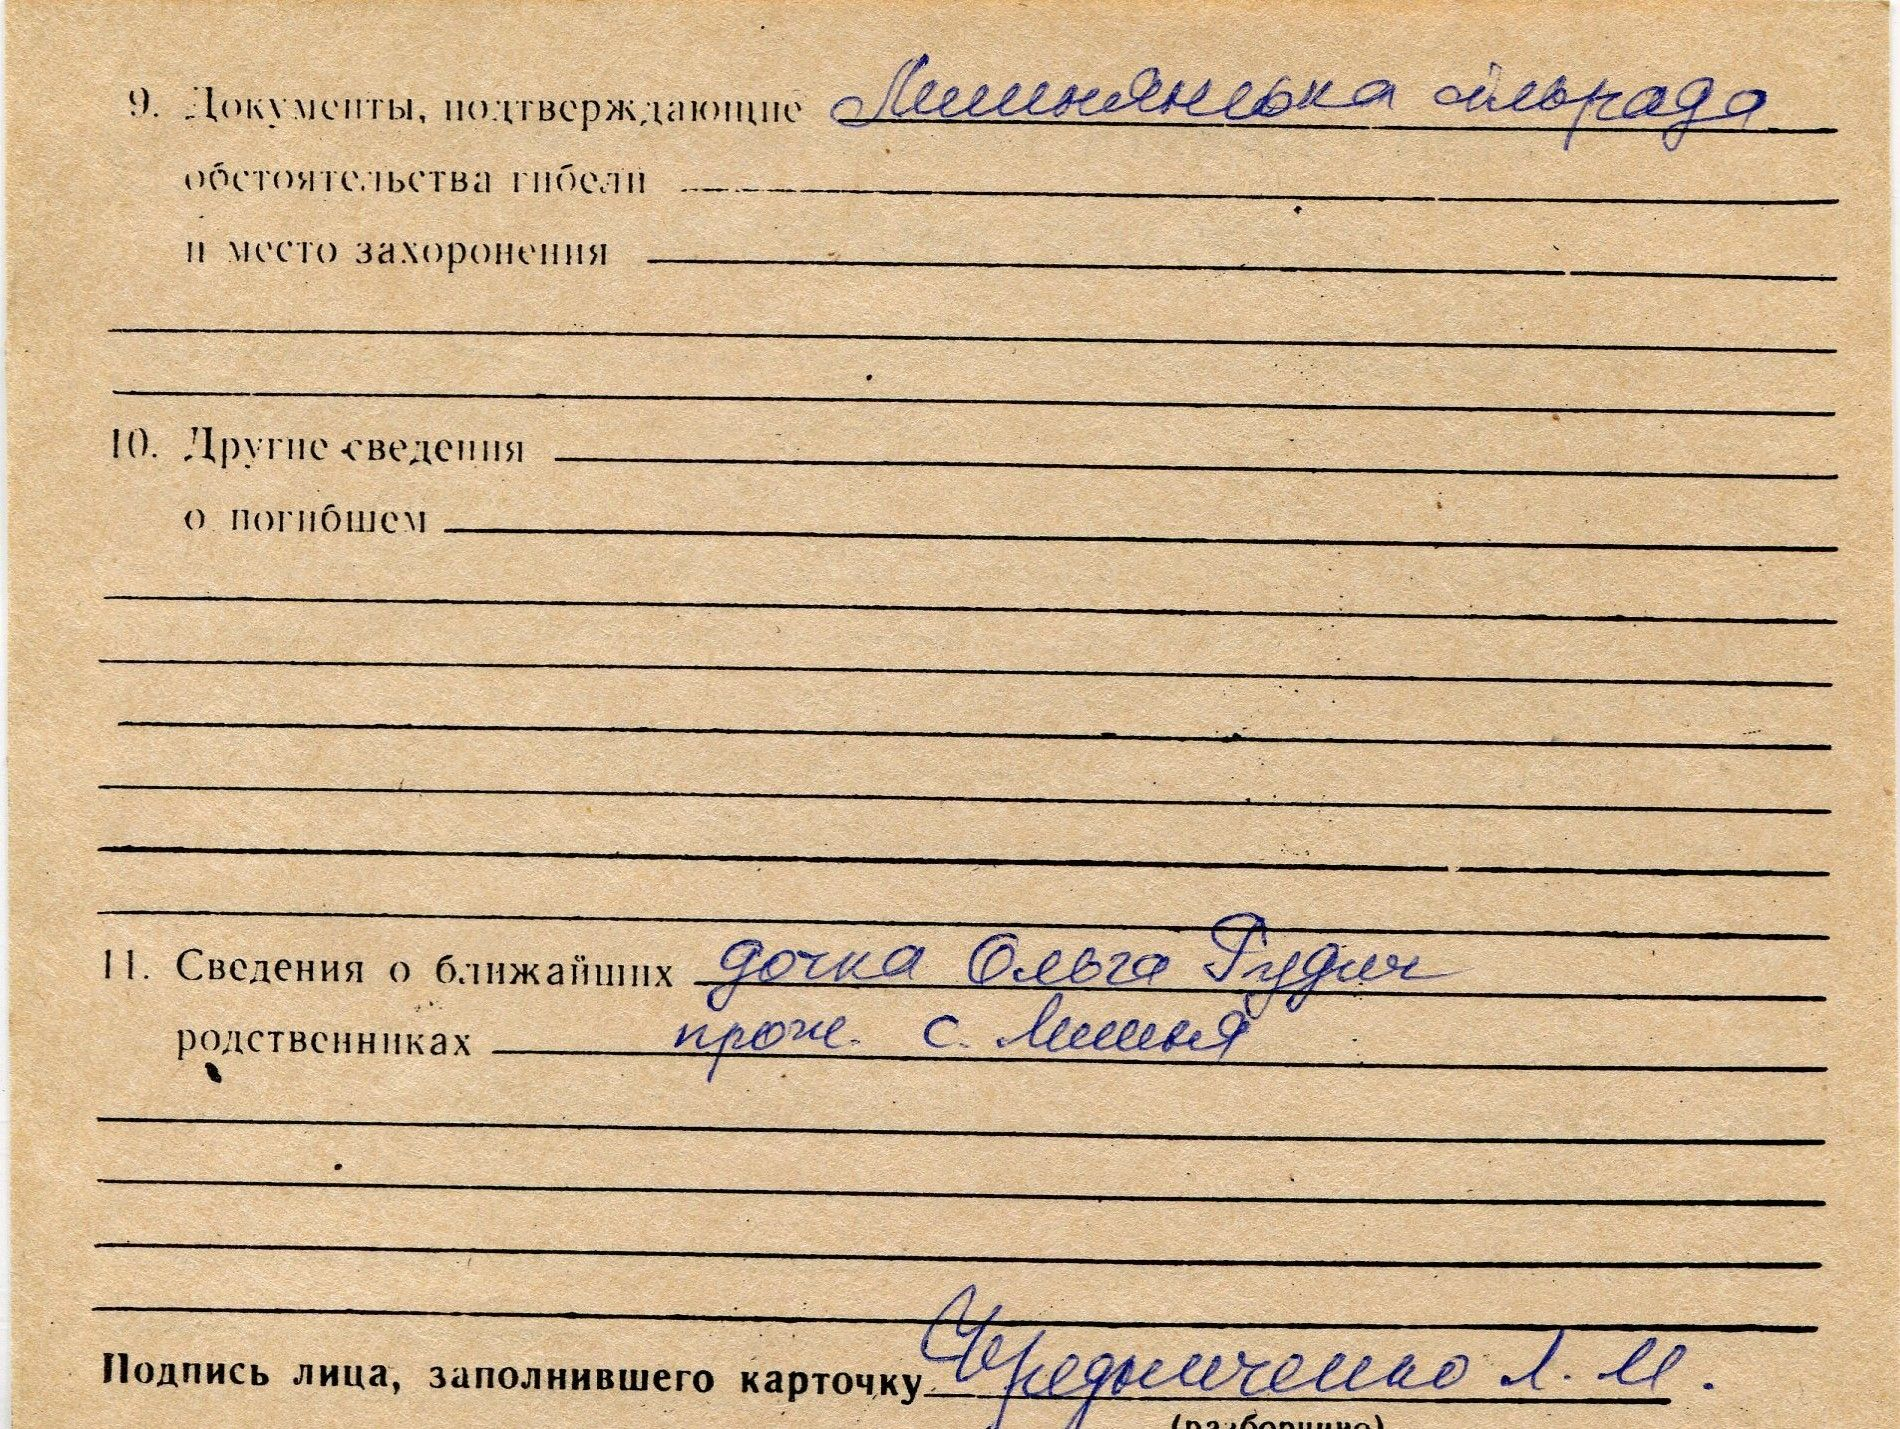 9. Документы, подтверждающие Лишнянська сільрада
обстоятельства гибели
и место захоронения
10. Другие сведения
о погибшем
11. Сведения о ближайших дочка Ольга Рудич
родственниках прож. с. Лишня
Подпись лица, заполнившего карточку Чередниченко Л. И.
(разборчиво)